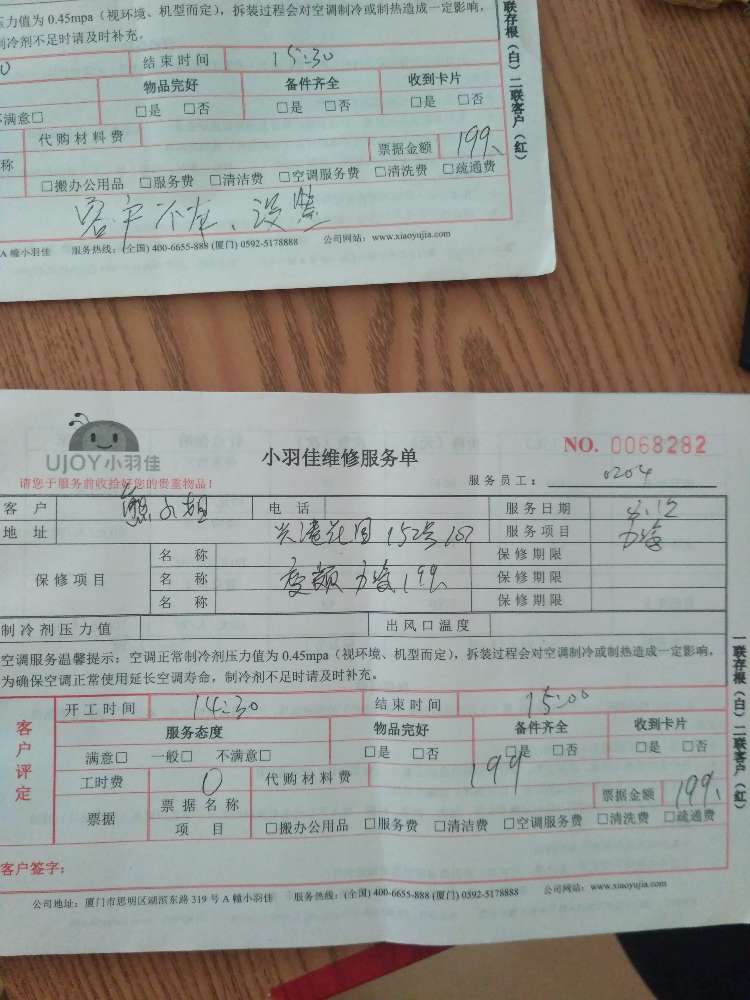 压力值为 0.45mpa（视环境、机型而定），拆装过程会对空调制冷或制热造成一定影响，
制冷剂不足时请及时补充。
0 结束时间 15:30
物品完好 备件齐全 收到卡片
不满意□ □是 □否 □是 □否 □是 □否
代购材料费
称 票据金额 199、
□搬办公用品 □服务费 □清洁费 □空调服务费 □清洗费 □疏通费
客户不在、没签
A 幢小羽佳 服务热线：(全国) 400-6655-888 (厦门) 0592-5178888 公司网站：www.xiaoyujia.com
联存根（白）二联客户（红）
UJOY小羽佳 小羽佳维修服务单 NO. 0068282
请您于服务前收拾好您的贵重物品！ 服务员工： 0204
客户 熊小姐 电话 服务日期
地址 兴港花园 152号 107 服务项目
保修项目 名称 保修期限
名称 199、 保修期限
名称 保修期限
制冷剂压力值 出风口温度
空调服务温馨提示：空调正常制冷剂压力值为 0.45mpa（视环境、机型而定），拆装过程会对空调制冷或制热造成一定影响，
为确保空调正常使用延长空调寿命，制冷剂不足时请及时补充。
客户评定 开工时间 14:30 结束时间 15:00
服务态度 物品完好 备件齐全 收到卡片
满意□ 一般□ 不满意□ □是 □否 □是 □否 □是 □否
工时费 0 代购材料费 199
票据 票据名称 票据金额 199、
项目 □搬办公用品 □服务费 □清洁费 □空调服务费 □清洗费 □疏通费
客户签字：
公司地址：厦门市思明区湖滨东路 319 号 A 幢小羽佳 服务热线：(全国) 400-6655-888 (厦门) 0592-5178888 公司网站：www.xiaoyujia.com
一联存根（白）二联客户（红）